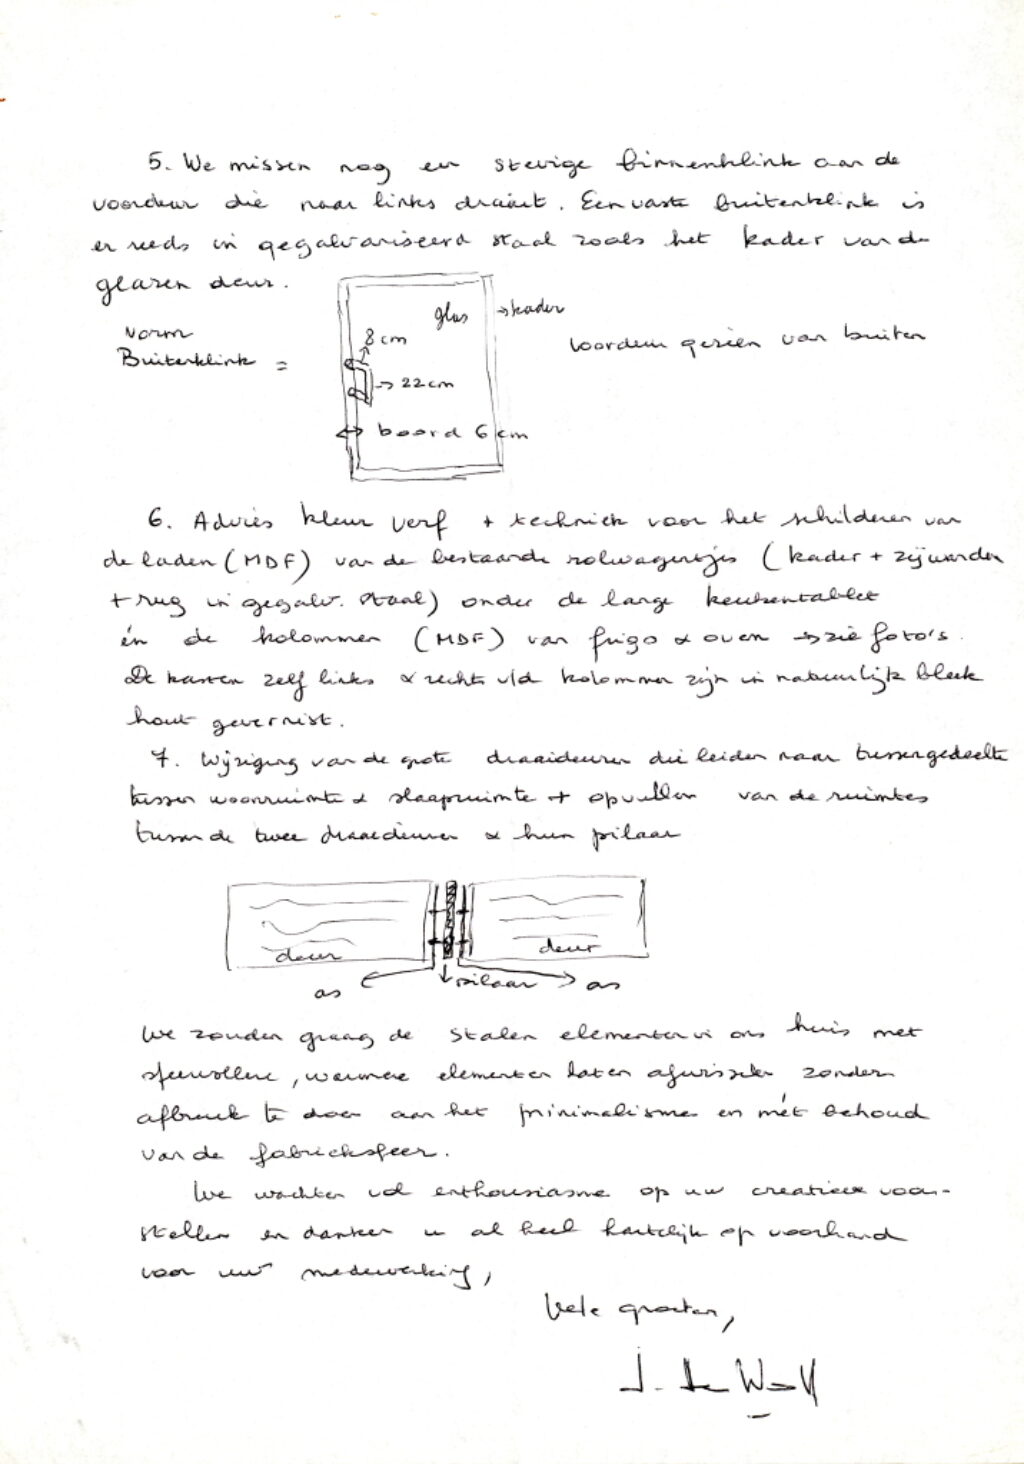 5. We missen nog een stevige binnenklink aan de
voordeur die naar links draait. Een vaste buitenklink is
er reeds in gegalvaniseerd staal zoals het kader van de
glazen deur.
glas
→ kader
Vorm
Buitenklink =
8 cm
→ 22 cm
Voordeur gezien van buiten
boord 6 cm
6. Advies kleur verf + techniek voor het schilderen van
de laden (MDF) van de bestaande rolwagentjes (kader + zijwanden
+ rug in gegalv. staal) onder de lange keukentablet
én de kolommen (MDF) van frigo & oven → zie foto's.
De kasten zelf links & rechts v/d kolommen zijn in natuurlijk bleek
hout gevernist.
7. Wijziging van de grote draaideuren die leiden naar tussengedeelte
tussen woonruimte & slaapruimte + opvullen van de ruimtes
tussen de twee draaideuren & hun pilaar
deur
deur
as
pilaar
as
We zouden graag de stalen elementen in ons huis met
sfeervollere, warmere elementen laten afwisselen zonder
afbreuk te doen aan het minimalisme en mét behoud
van de fabrieksfeer.
We wachten vol enthousiasme op uw creatieve voor-
stellen en danken u al heel hartelijk op voorhand
voor uw medewerking,
Vele groeten,
J. De Wolf